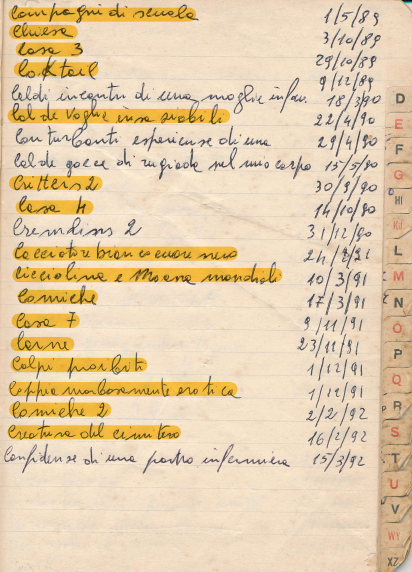 Compagni di scuola 1/5/89
Chiesa 3/10/89
Casa 3 29/10/89
Cocktail 9/12/89
Caldi incontri di una moglie infav. 18/3/90
Calde voglie insaziabili 22/4/90
Conturbanti esperienze di una 29/4/90
Calde gocce di rugiada nel mio corpo 15/5/90
Critters 2 30/9/90
Casa 4 14/10/90
Cremlins 2 31/12/90
Cacciatore bianco cuore nero 24/2/91
Cicciolina e Moana mondiali 10/3/91
Comiche 17/3/91
Casa 7 9/11/91
Carne 23/11/91
Colpi proibiti 1/12/91
Coppia morbosamente erotica 1/12/91
Comiche 2 2/2/92
Creatura del cimitero 16/2/92
Confidenze di una porno infermiera 15/3/92
D
E
F
G
HI
KJ
L
M
N
O
P
Q
R
S
T
U
V
WY
XZ